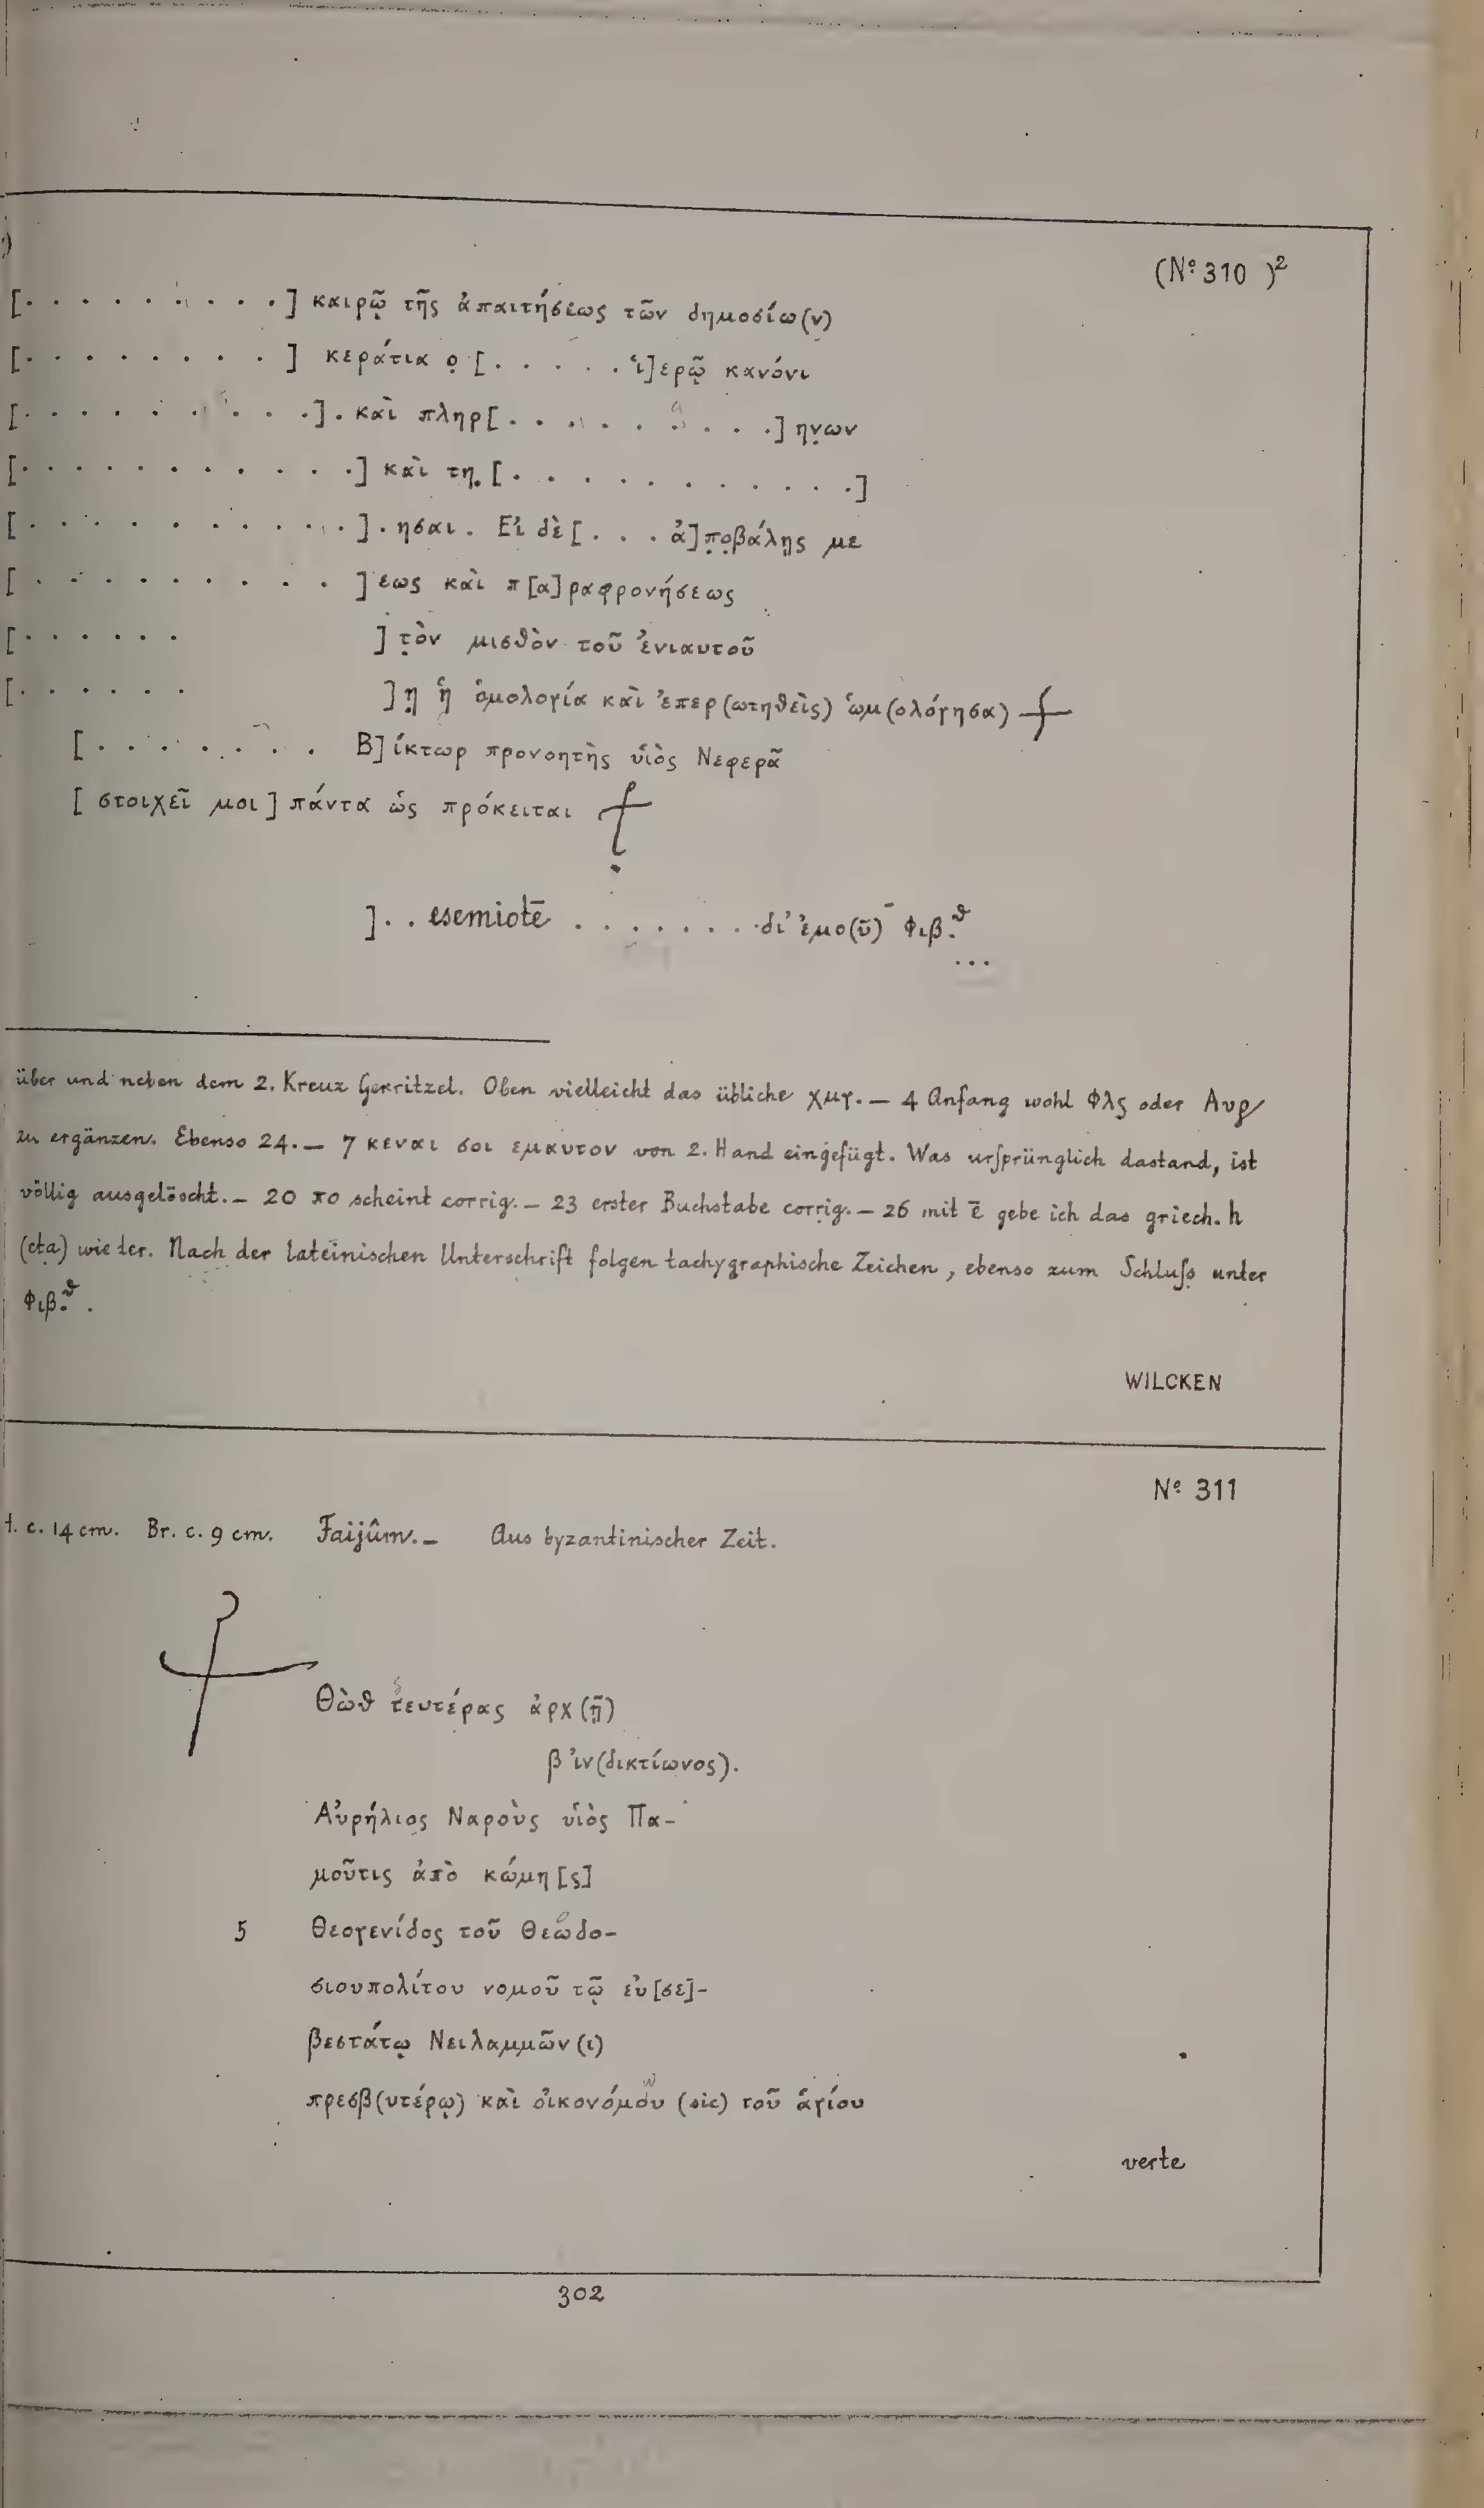 (Nº 310 )²
[· · · · · · · · · ·] καιρῷ τῆς ἀπαιτήσεως τῶν δημοσίω(ν)
[· · · · · · · · ·] κεράτια ο̣ [. . . . . ἱ]ερῷ κανόνι
[· · · · · · · · · ·]. καὶ πληρ[. . . . . . . . . .] ην̣ων
[· · · · · · · · · · · ·] καὶ τη̣ [. . . . . . . . . . . .]
[· · · · · · · · · · · ·]. ησαι. Εἰ δὲ [. . . ἀ]π̣ο̣βάλη̣ς με
[· · · · · · · · · ·]εως καὶ π[α]ραφρονήσεως
[· · · · · · ]τ̣ὸν μισθὸν τοῦ ἐνιαυτοῦ
[· · · · · · ]η̣ ἡ ὁμολογία καὶ ἐπερ(ωτηθεὶς) ὡμ(ολόγησα) ⳨
[· · · · · · · · Β]ίκτωρ προνοητὴς υἱὸς Νεφερᾶ
[ στοιχεῖ μοι ] πάντα ὡς πρόκειται ⳨
]. . esemiotē . . . . . . . . δι' ἐμο(ῦ) Φιβ.ᶿ
...
über und neben dem 2. Kreuz Gekritzel. Oben vielleicht das übliche χμγ. — 4 Anfang wohl Φλς oder Αυρ/
zu ergänzen. Ebenso 24. — 7 κεναι σοι εμαυτον von 2. Hand eingefügt. Was ursprünglich dastand, ist
völlig ausgelöscht. — 20 πο scheint corrig. — 23 erster Buchstabe corrig. — 26 mit ē gebe ich das griech. h
(eta) wieder. Nach der lateinischen Unterschrift folgen tachygraphische Zeichen, ebenso zum Schluſs unter
Φιβ.ᶿ .
WILCKEN
Nº 311
c. 14 cm. Br. c. 9 cm. Faijûm. — Aus byzantinischer Zeit.
⳨
Θὼθ τευτέρας ἀρχ(ῇ)
β ἰν(δικτίωνος).
Αὐρήλιος Ναροὺς υἱὸς Πα-
μοῦτις ἀπὸ κώμη[ς]
5 Θεογενίδος τοῦ Θεωδο-
σιουπολίτου νομοῦ τῷ εὐ[σε]-
βεστάτῳ Νειλαμμῶν(ι)
πρεσβ(υτέρῳ) καὶ οἰκονόμου (sic) τοῦ ἁγίου
verte
302